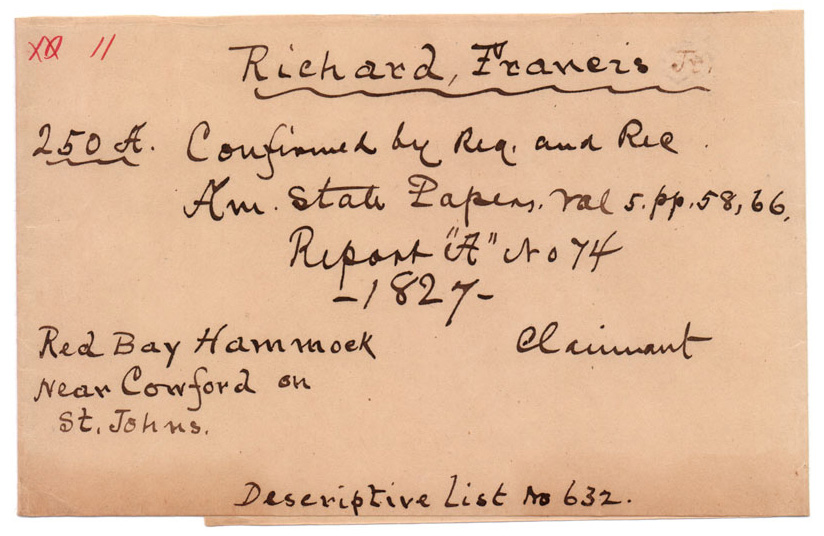 11
Richard, Francis Jr.
250 A. Confirmed by Reg. and Rec.
Am. State Papers. Vol 5. pp. 58, 66.
Report "A" No 74
-1827-
Red Bay Hammock Claimant
Near Cowford on
St. Johns.
Descriptive List No 632.